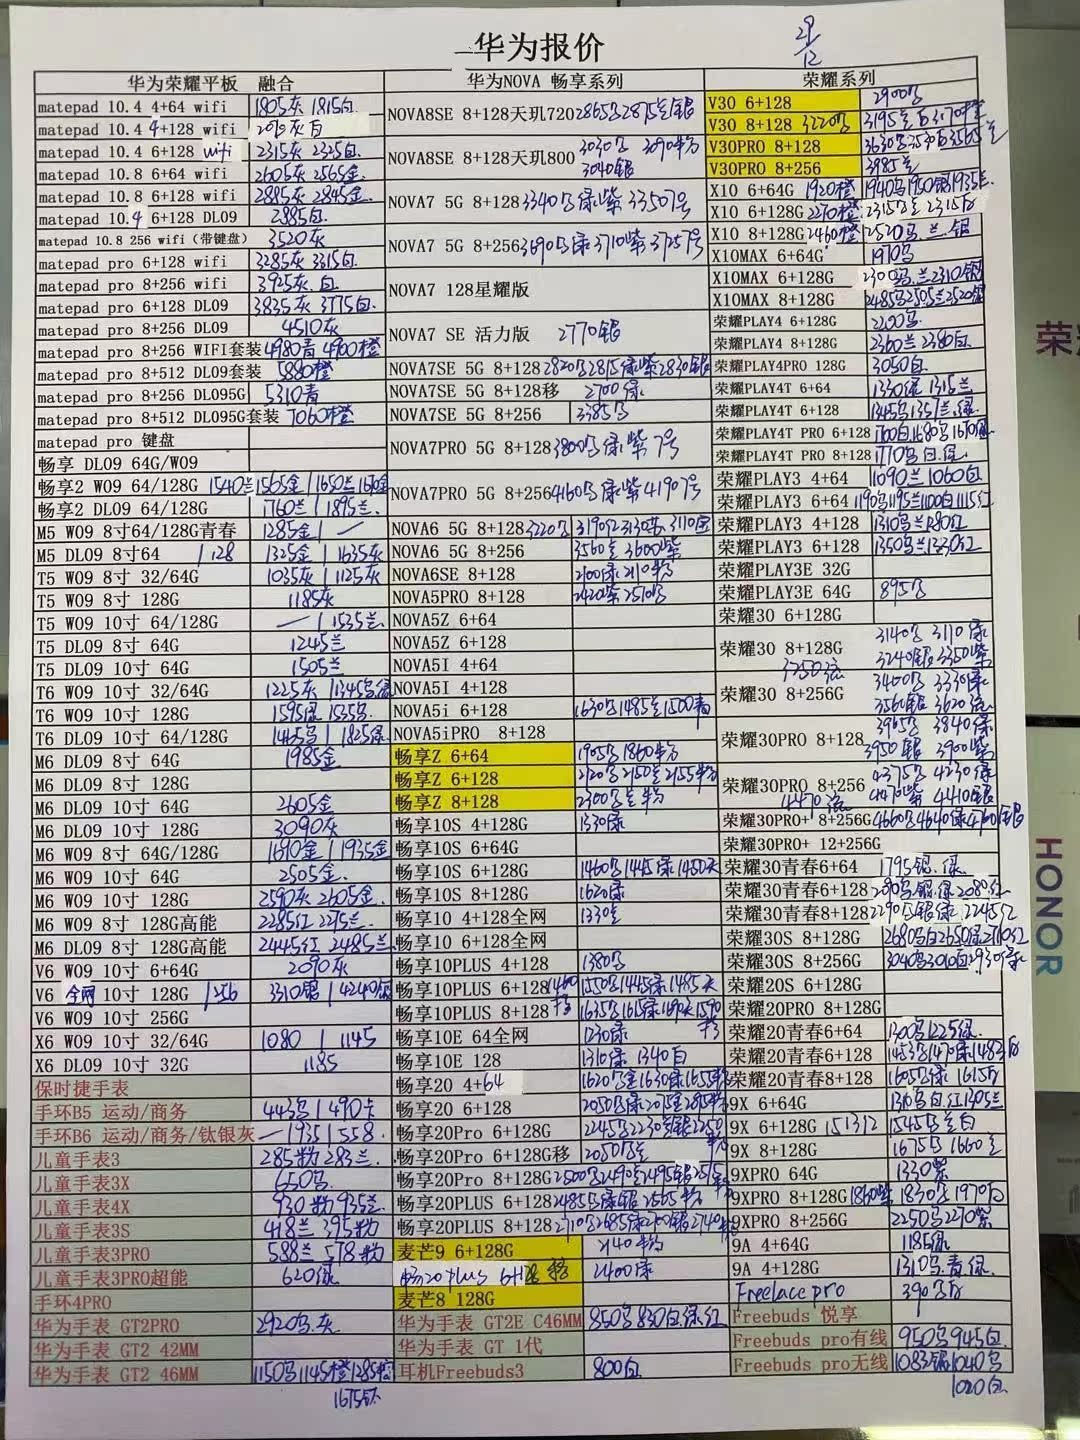 华为报价
29/12
华为荣耀平板 融合
matepad 10.4 4+64 wifi 1805灰 1815白
matepad 10.4 4+128 wifi 2090灰白
matepad 10.4 6+128 wifi 2315灰 2325白
matepad 10.8 6+64 wifi 2605灰 2565金
matepad 10.8 6+128 wifi 2885灰 2845金
matepad 10.4 6+128 DL09 2885白
matepad 10.8 256 wifi（带键盘） 3520灰
matepad pro 6+128 wifi 3285灰 3315白
matepad pro 8+256 wifi 3925灰.白
matepad pro 6+128 DL09 3835灰 3775白
matepad pro 8+256 DL09 4510灰
matepad pro 8+256 WIFI套装 4980青 4900橙
matepad pro 8+512 DL09套装 5880橙
matepad pro 8+256 DL095G 5310青
matepad pro 8+512 DL095G套装 7060橙
matepad pro 键盘
畅享 DL09 64G/W09
畅享2 W09 64/128G 1540兰1565金/1650兰1690金
畅享2 DL09 64/128G 1760兰/1895兰
M5 W09 8寸64/128G青春 1285金/—
M5 DL09 8寸64 /128 1325金/1635灰
T5 W09 8寸 32/64G 1035灰/1125灰
T5 W09 8寸 128G 1185灰
T5 W09 10寸 64/128G —/1535兰
T5 DL09 8寸 64G 1245兰
T5 DL09 10寸 64G 1505兰
T6 W09 10寸 32/64G 1225灰/1345乌绿
T6 W09 10寸 128G 1595绿 1535乌
T6 DL09 10寸 64/128G 1465乌/1825绿
M6 DL09 8寸 64G 1985金
M6 DL09 8寸 128G
M6 DL09 10寸 64G 2605金
M6 DL09 10寸 128G 3090灰
M6 W09 8寸 64G/128G 1690金/1935金
M6 W09 10寸 64G 2505金
M6 W09 10寸 128G 2590灰 2605金
M6 W09 8寸 128G高能 2285红 2275兰
M6 DL09 8寸 128G高能 2445红 2485兰
V6 W09 10寸 6+64G 2090灰
V6 全网 10寸 128G /256 3310银/4240银
V6 W09 10寸 256G
X6 W09 10寸 32/64G 1080/1145
X6 DL09 10寸 32G 1185
保时捷手表
手环B5 运动/商务 443乌/490卡
手环B6 运动/商务/钛银灰 —/935/1558
儿童手表3 285粉 283兰
儿童手表3X 650乌
儿童手表4X 930粉 935兰
儿童手表3S 418兰 395粉
儿童手表3PRO 588兰 578粉
儿童手表3PRO超能 620绿
手环4PRO
华为手表 GT2PRO 2920乌.灰
华为手表 GT2 42MM
华为手表 GT2 46MM 1150乌1145橙1285棕
1675钛
华为NOVA 畅享系列
NOVA8SE 8+128天玑720 2865乌2875兰银
NOVA8SE 8+128天玑800 3030乌 3090粉
3040银
NOVA7 5G 8+128 3340乌绿紫 3350 7号
NOVA7 5G 8+256 3690乌绿3710紫 3725 7号
NOVA7 128星耀版
NOVA7 SE 活力版 2770银
NOVA7SE 5G 8+128 2820乌2815绿紫2830银
NOVA7SE 5G 8+128移 2700绿
NOVA7SE 5G 8+256 3385乌
NOVA7PRO 5G 8+128 3800乌绿紫7号
NOVA7PRO 5G 8+256 4160乌绿紫4190 7号
NOVA6 5G 8+128 3220乌 3190红3130苏3110金
NOVA6 5G 8+256 3560兰 3600紫
NOVA6SE 8+128 2100绿2110粉
NOVA5PRO 8+128 2420紫2510乌
NOVA5Z 6+64
NOVA5Z 6+128
NOVA5I 4+64
NOVA5I 4+128
NOVA5i 6+128 1630乌1485兰1500青
NOVA5iPRO 8+128
畅享Z 6+64 1905乌1860粉
畅享Z 6+128 2120乌2150兰2155粉
畅享Z 8+128 2300乌兰粉
畅享10S 4+128G 1330绿
畅享10S 6+64G
畅享10S 6+128G 1460乌1445绿1450天
畅享10S 8+128G 1620绿
畅享10 4+128全网 1330兰
畅享10 6+128全网
畅享10PLUS 4+128 1380乌
畅享10PLUS 6+128 1460移 1550乌1445绿1485天
畅享10PLUS 8+128 1635乌1615绿1690天1590移
畅享10E 64全网 1230绿
畅享10E 128 1310绿 1340白
畅享20 4+64 1620乌金1630绿1615粉
畅享20 6+128 2050乌绿2075金2815粉
畅享20Pro 6+128G 2245乌2230兰银2250粉
畅享20Pro 6+128G移 2050乌兰
畅享20Pro 8+128G 2500乌2490兰2495银2515粉
畅享20PLUS 6+128 2485乌绿银2565粉
畅享20PLUS 8+128 2710乌2685绿2700银2740粉
麦芒9 6+128G 2140粉
畅20 plus 6+128 移 2400绿
麦芒8 128G
华为手表 GT2E C46MM 850乌830白绿.红
华为手表 GT 1代
耳机Freebuds3 800白
荣耀系列
V30 6+128 2900乌
V30 8+128 3220乌 3195兰白3170橙
V30PRO 8+128 3630乌3530白3565兰
V30PRO 8+256 3985兰
X10 6+64G 1920橙 1940乌1950银1935兰
X10 6+128G 2270橙 2315乌兰2315白
X10 8+128G 2460橙 2520乌.兰.银
X10MAX 6+64G 1970乌
X10MAX 6+128G 2300乌.兰2310银
X10MAX 8+128G 2485乌2505兰2520银
荣耀PLAY4 6+128G 2200乌
荣耀PLAY4 8+128G 2360兰 2380白
荣耀PLAY4PRO 128G 3050白
荣耀PLAY4T 6+64 1330绿 1315兰
荣耀PLAY4T 6+128 1345乌1357兰.绿
荣耀PLAY4T PRO 6+128 1700白1680乌1670绿
荣耀PLAY4T PRO 8+128 1770乌.白.绿
荣耀PLAY3 4+64 1090兰 1060白
荣耀PLAY3 6+64 1190乌1195兰1100白1115红
荣耀PLAY3 4+128 1310乌兰1280红
荣耀PLAY3 6+128 1350乌兰1330红
荣耀PLAY3E 32G
荣耀PLAY3E 64G 895乌
荣耀30 6+128G
荣耀30 8+128G 3140乌 3110绿
3240银 3350紫
3250流
荣耀30 8+256G 3400乌 3330绿
3560银 3620流
荣耀30PRO 8+128 3965乌 3840绿
3950银 3900紫
荣耀30PRO 8+256 4375乌 4230绿
4470流 4470紫 4410银
荣耀30PRO+ 8+256G 4660乌4640绿4760银
荣耀30PRO+ 12+256G
荣耀30青春6+64 1795银.绿
荣耀30青春6+128 2090乌.银.绿2080红
荣耀30青春8+128 2290乌银绿 2245红
荣耀30S 8+128G 2680乌白2650绿2710红
荣耀30S 8+256G 3040乌3010白2930绿
荣耀20S 6+128G
荣耀20PRO 8+128G
荣耀20青春6+64 1300乌1225绿
荣耀20青春6+128 1453乌1470绿1483白
荣耀20青春8+128 1605乌绿 1615白
9X 6+64G 1310乌白.红1305兰
9X 6+128G 151312 1545乌兰白
9X 8+128G 1675乌 1660兰
9XPRO 64G 1330紫
9XPRO 8+128G 1860紫 1830乌 1970白
9XPRO 8+256G 2250乌2270紫
9A 4+64G 1185绿
9A 4+128G 1310乌.青.绿
Freelace pro 390乌白
Freebuds 悦享
Freebuds pro有线 950乌945白
Freebuds pro无线 1083银1040乌
1020白
荣耀
HONOR